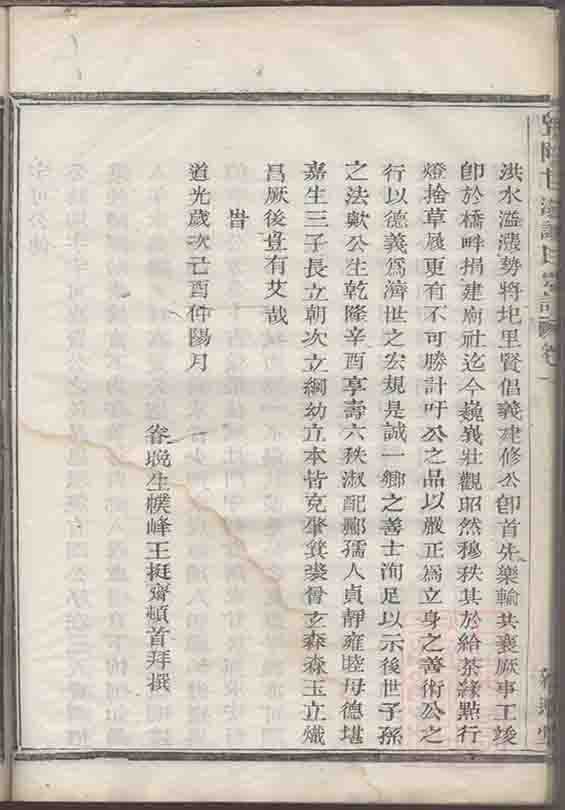 洪水溢漲勢將圮里賢倡義建修公卽首先樂輸共襄厥事工竣
卽於橋畔捐建廟社迄今巍峩壯觀昭然穆秩其於給茶緣點行
燈捨草屐更有不可勝計吁公之品以嚴正爲立身之善術公之
行以德義爲濟世之宏規是誠一鄉之善士洵足以示後世子孫
之法歟公生乾隆辛酉享壽六秩淑配鄺孺人貞靜雍睦母德堪
嘉生三子長立朝次立綱幼立本皆克肇箕裘骨玄森森玉立熾
昌厥後豈有艾哉
旹
道光歲次己酉仲陽月
眷晚生樸峰王挺齋頓首拜撰